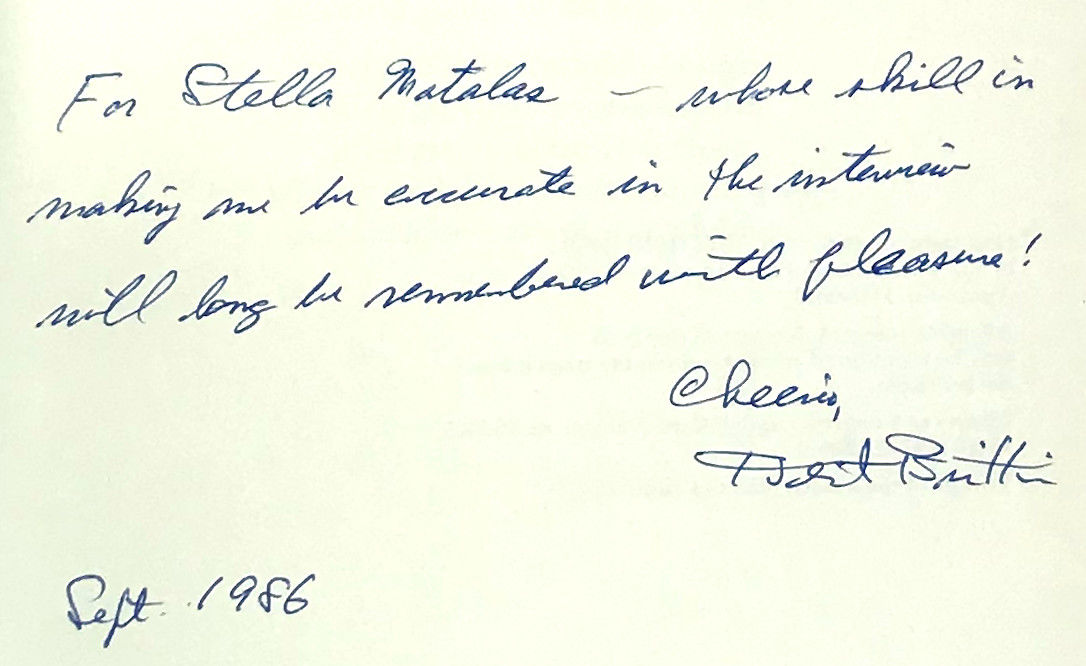 For Stella Matalas — whose skill in
making me be accurate in the interview
will long be remembered with pleasure!
Cheerio,
Sept. 1986